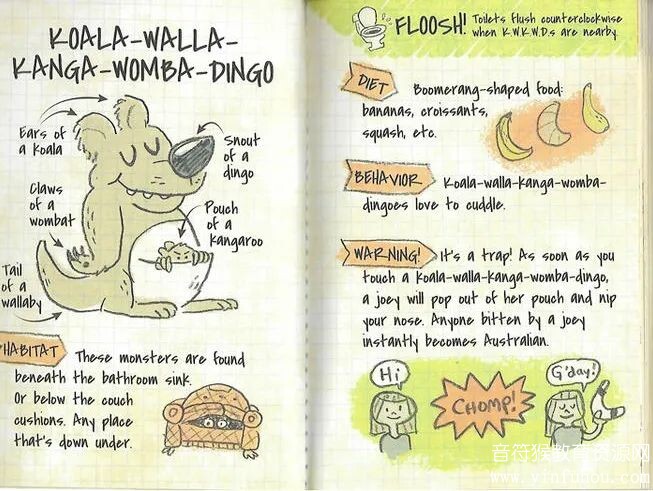 KOALA-WALLA-
KANGA-WOMBA-DINGO
Ears of
a koala
Snout
of a
dingo
Claws
of a
wombat
Pouch
of a
kangaroo
Tail
of a
wallaby
HABITAT These monsters are found
beneath the bathroom sink.
Or below the couch
cushions. Any place
that's down under.
FLOOSH! Toilets flush counterclockwise
when K.W.K.W.D.s are nearby.
DIET Boomerang-shaped food:
bananas, croissants,
squash, etc.
BEHAVIOR Koala-walla-kanga-womba-
dingoes love to cuddle.
WARNING! It's a trap! As soon as you
touch a koala-walla-kanga-womba-dingo,
a joey will pop out of her pouch and nip
your nose. Anyone bitten by a joey
instantly becomes Australian.
Hi
CHOMP!
G'day!
音符猴教育资源网
www.yinfuhou.com